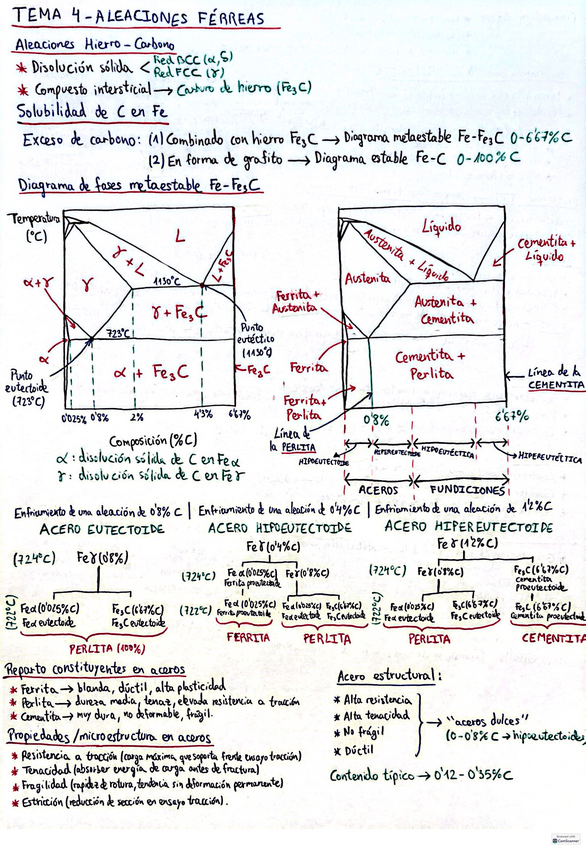 TEMA 4-ALEACIONES FÉRREAS
Aleaciones Hierro-Carbono
* Disolución sólida < Red BCC (α, δ)
Red FCC (γ)
* Compuesto intersticial → Carburo de hierro (Fe₃C)
Solubilidad de C en Fe
Exceso de carbono: (1) Combinado con hierro Fe₃C → Diagrama metaestable Fe-Fe₃C 0-6'67% C
(2) En forma de grafito → Diagrama estable Fe-C 0-100% C
Diagrama de fases metaestable Fe-Fe₃C
Temperatura
(°C)
L
γ + L
L + Fe₃C
1130°C
α+γ
γ
γ + Fe₃C
723°C
Punto
eutéctico
(1130°C)
α
α + Fe₃C
Fe₃C
Punto
eutectoide
(723°C)
0'025% 0'8% 2% 4'3% 6'67%
Composición (%C)
α: disolución sólida de C en Feα
γ: disolución sólida de C en Feγ
Líquido
Austenita + Líquido
Cementita +
Líquido
Austenita
Ferrita +
Austenita
Austenita +
Cementita
Ferrita
Cementita +
Perlita
Ferrita+
Perlita
Línea de la
CEMENTITA
Línea de
la PERLITA
0'8%
6'67%
HIPOEUTECTOIDE
HIPEREUTECTOIDE
HIPOEUTÉCTICA
HIPEREUTÉCTICA
ACEROS
FUNDICIONES
Enfriamiento de una aleación de 0'8% C | Enfriamiento de una aleación de 0'4% C | Enfriamiento de una aleación de 1'2% C
ACERO EUTECTOIDE
ACERO HIPOEUTECTOIDE
ACERO HIPEREUTECTOIDE
(724°C)
Feγ (0'8%)
(722°C)
Feα (0'025%C) Fe₃C (6'67%C)
Feα eutectoide Fe₃C eutectoide
PERLITA (100%)
Feγ (0'4%C)
(724°C)
Feα (0'025%C) Feγ (0'8%C)
Ferrita proeutectoide
(722°C)
Feα (0'025%C) Feα (0'025%C) Fe₃C (6'67%C)
Ferrita proeutectoide Feα eutectoide Fe₃C eutectoide
FERRITA PERLITA
Feγ (1'2%C)
(724°C)
Feγ (0'8%C) Fe₃C (6'67%C)
Cementita
proeutectoide
(722°C)
Feα (0'025%C) Fe₃C (6'67%C) Fe₃C (6'67%C)
Feα eutectoide Fe₃C eutectoide Cementita proeutectoide
PERLITA CEMENTITA
Reparto constituyentes en aceros
* Ferrita → blanda, dúctil, alta plasticidad
* Perlita → dureza media, tenaz, elevada resistencia a tracción
* Cementita → muy dura, no deformable, frágil.
Propiedades/microestructura en aceros
* Resistencia a tracción (carga máxima que soporta frente ensayo tracción)
* Tenacidad (absorber energía de carga antes de fractura)
* Fragilidad (rapidez de rotura, tendencia sin deformación permanente)
* Estricción (reducción de sección en ensayo tracción).
Acero estructural:
* Alta resistencia
* Alta tenacidad
* No frágil
* Dúctil
→ "aceros dulces"
(0-0'8% C → hipoeutectoides)
Contenido típico → 0'12-0'35% C
CamScanner